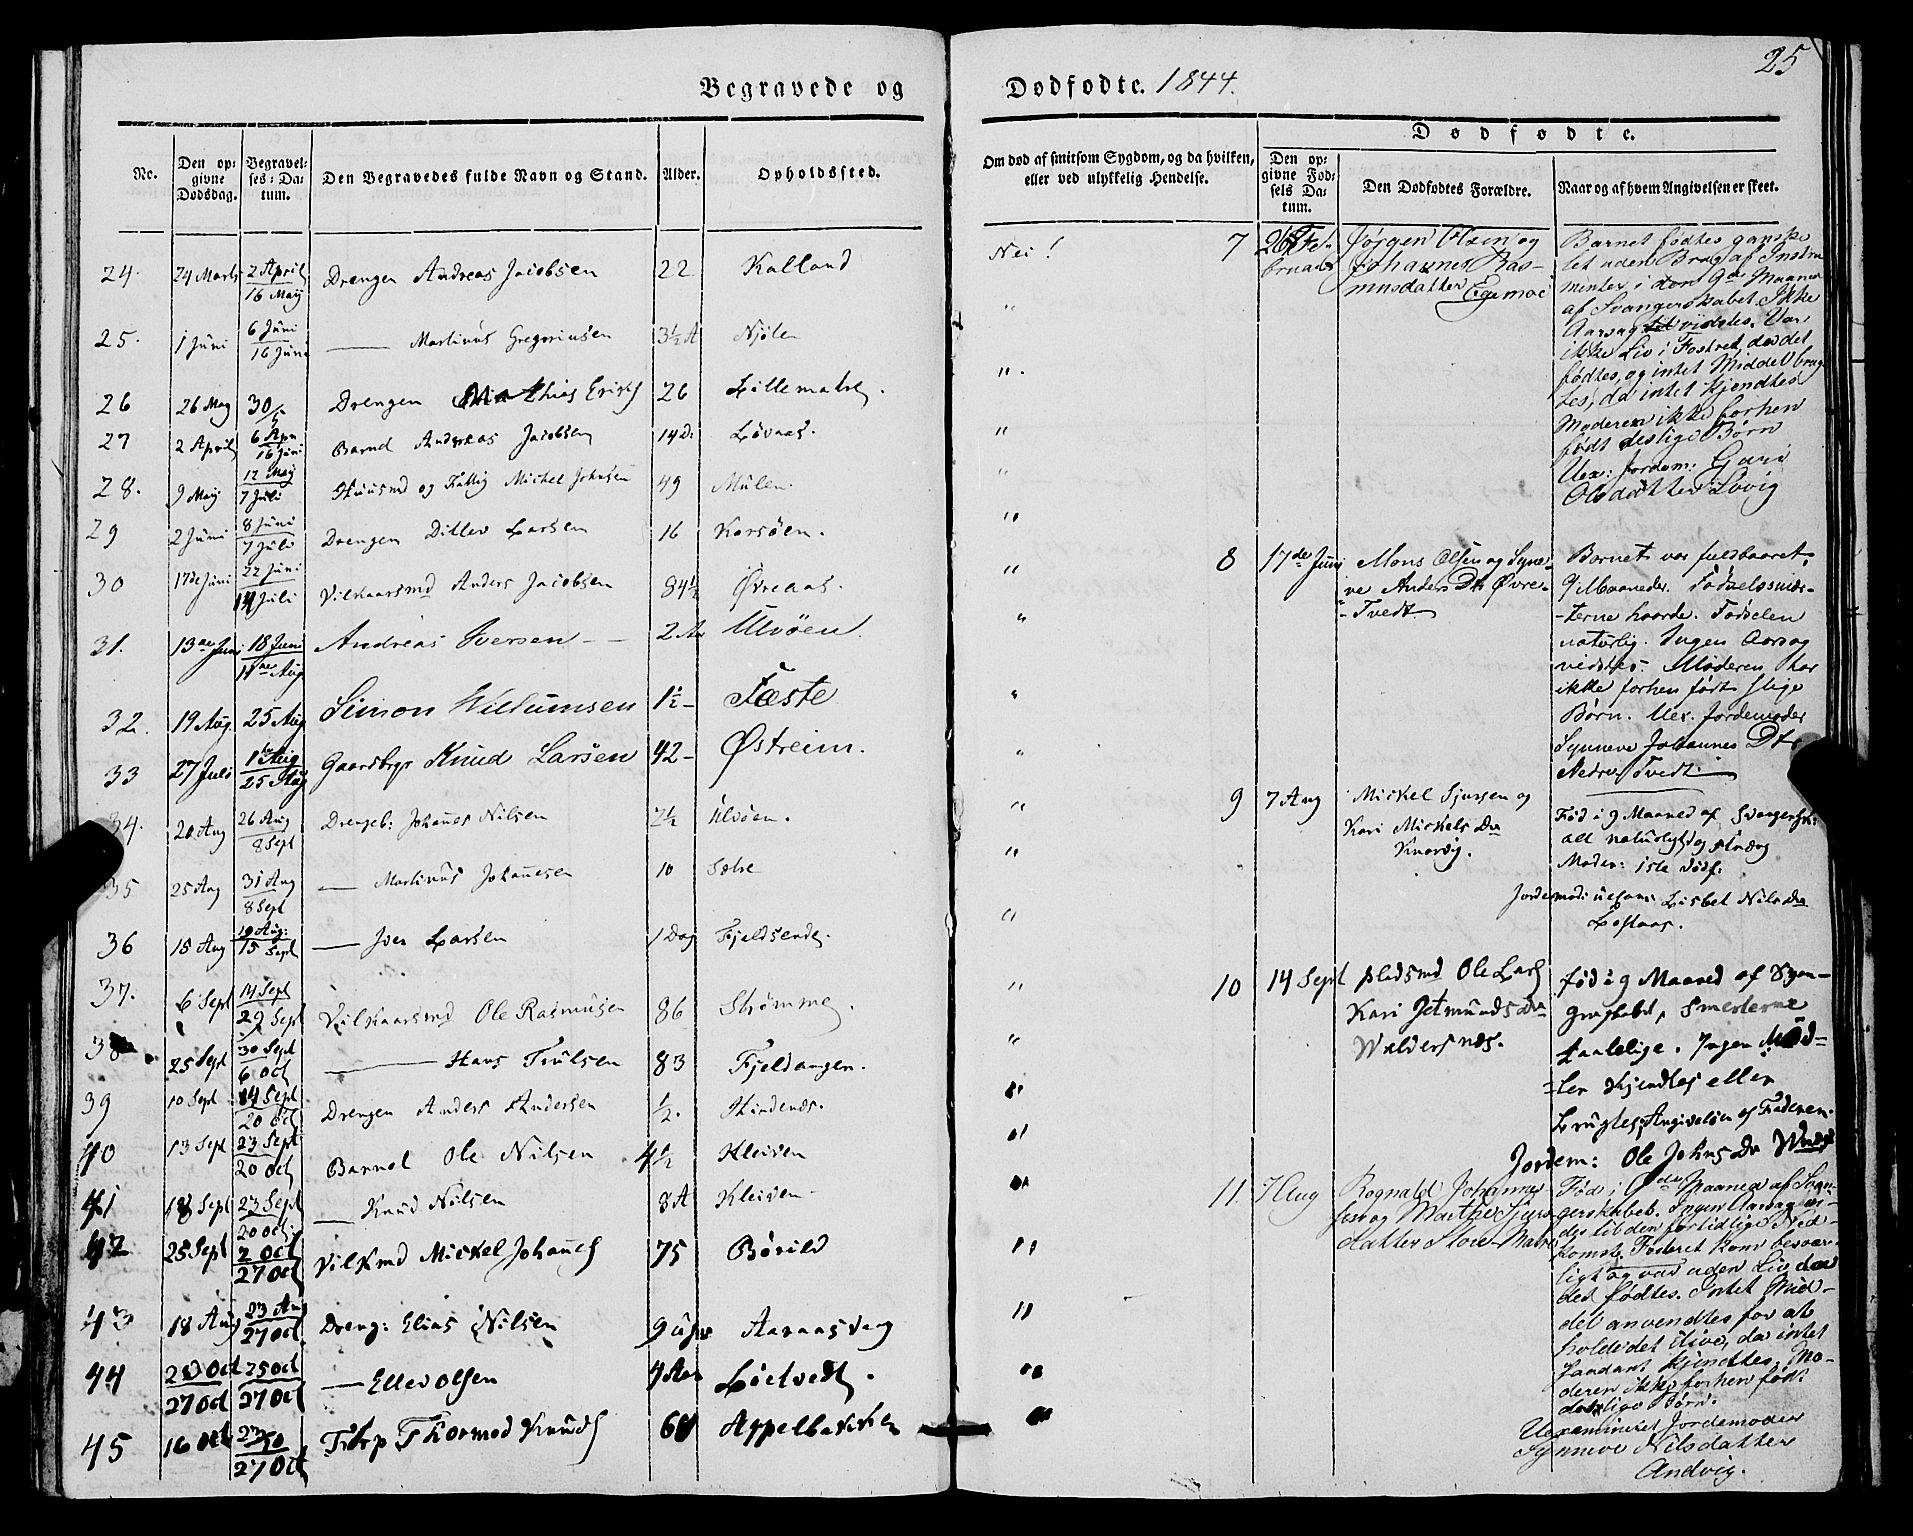 25
Begravede og Dødfødte. 1844.
No.
Den opgivne Dødsdag.
Begravelses-Datum.
Den Begravedes fulde Navn og Stand.
Alder.
Opholdssted.
Om død af smitsom Sygdom, og da hvilken, eller ved ulykkelig Hendelse.
Dødfødte.
Den opgivne Fødsels Datum.
Den Dødfødtes Forældre.
Naar og af hvem Angivelsen er skeet.
24. 24 Marts 2 April 16 Maij Drengen Andreas Jacobsen 22 Kalland Nei!
25. 1 Juni 6 Juni 16 Juni — Martinus Gregoriusen 3½ A Njølen "
26 26 May 30/5 Drengen Mathias Erichs 26 Lillematre. "
27 2 April 6 Apr 16 Juni Barnet Andreas Jacobsen 14 D. Løvaas. "
28. 9 May 12 May 7 Juli Huusmd og Fattig Mickel Johnsen 49 Mulen. "
29 2 Juni 8 Juni 7 Juli Drengen Ditlev Larsen 16 Korsøen. "
30 17de Juni 22 Juni 14 Juli Vilkaarsmd Anders Jacobsen 84½ Øvreaas. "
31. 13de Juni 18 Juni 11te Aug Andreas Iversen — 2 Aar Ulvøen. "
32. 19 Aug. 25 Aug Simon Willumsen 1½ - Fæste "
33 27 Juli 1te Aug 25 Aug Gaardbrgr Knud Larsen 42 - Østreim. "
34. 20 Aug 26 Aug 8 Sept Drengeb: Johannes Nilsen 2½ Ulvøen. "
35 25 Aug 31 Aug 8 Sept — Martinus Johannesen 10 Sæbø "
36 15 Aug 19 Aug: 15 Sept — Iver Larsen 1 Dag Fjeldsende. "
37. 6 Sept 14 Sept 29 Sept Vilkaarsmd Ole Rasmusen 86 Strømme. "
38 25 Sept 30 Sept 6 Oct — Hans Trulsen 83 Fjeldangen. "
39 10 Sept 14 Sept 20 Oct Drengen Anders Andersen ½. Hindenæs. "
40 13 Sept 23 Sept 20 Oct Barnet Ole Nilsen 4½ Kleiven "
41 18 Sept 23 Sept 20 Oct. — Knud Nilsen 8 A Kleiven. "
42 25 Sept 2 Oct 27 Oct Vilkmd Mickel Johannes 75 Børild "
43 18 Aug 23 Aug 27 Oct Dreng: Elias Nilsen 9 Uger Aaraasvag "
44 20 Oct 27 Oct 25 Oct 27 Oct — Ellev Olsen 4 Aar Lietvedt. "
45 16 Oct 27 Oct Thormod Knuds 60 Appelbakken "
7 Jørgen Olsen og
Johannes Rasmusdatter Egemoe
Barnet fødtes ganske
let uden Brug af Instru
menter i den 9de Maaned
af Svangerskabet. Ikke
Aarsag vidstes. Var
ikke Liv i Fostret, da det
fødtes, og intet Middel brug
tes, da intet kjendtes
Moderen ikke forhen
født deslige Børn
Uex: Jordem: Guri
Olsdatter Lovig
8 17de Juni Mons Olsen og Synne-
ve Anders Dtr Øvre-
Tvedt.
Barnet var fuldbaaret,
9 Maaneder. Fødselssmer-
terne haarde. Fødselen
naturlig. Ingen Aarsag
vidstes. Moderen har
ikke forhen født slige
Børn. Uex. Jordemoder
Synneve Johannes Dtr
Nedre Tvedt.
9 7 Aug Mickel Sjursen og
Kari Mickels Dr
Knarvig.
Fød i 9 Maaned af Svangersk:
alt naturligt og stræng
Moder: 1ste Dødf:
Jordemodr uexam: Lisbet Nils Dr
Lostaas.
10 14 Sept Pladsmd Ole Lars
Kari Jetmunds Dr
Waldersnæs.
Fød i 9 Maaned af Svan-
gerskabet, Smerterne
taalelige. Ingen Mid-
ler kjendtes eller
brugtes. Angivelsen af Faderen.
Jordem: Ole Johns Dr
11. 7 Aug Rognald Johanne
sen og Marthe Sjurs
datter Store Matre
Fød i 6de Maaned af Svan-
gerskabet. Ingen Aarsag vi-
des til den fortidlige Ned-
komst. Fosteret kom besvær-
ligt og var uden Liv, da
det fødtes. Intet Mid-
del anvendtes for at
holde det ilive, da intet
saadant kjendtes. Mo-
deren ikke forhen født
deslige Børn.
Uexamineret Jordemoder
Synneve Nilsdatter
Andvig.